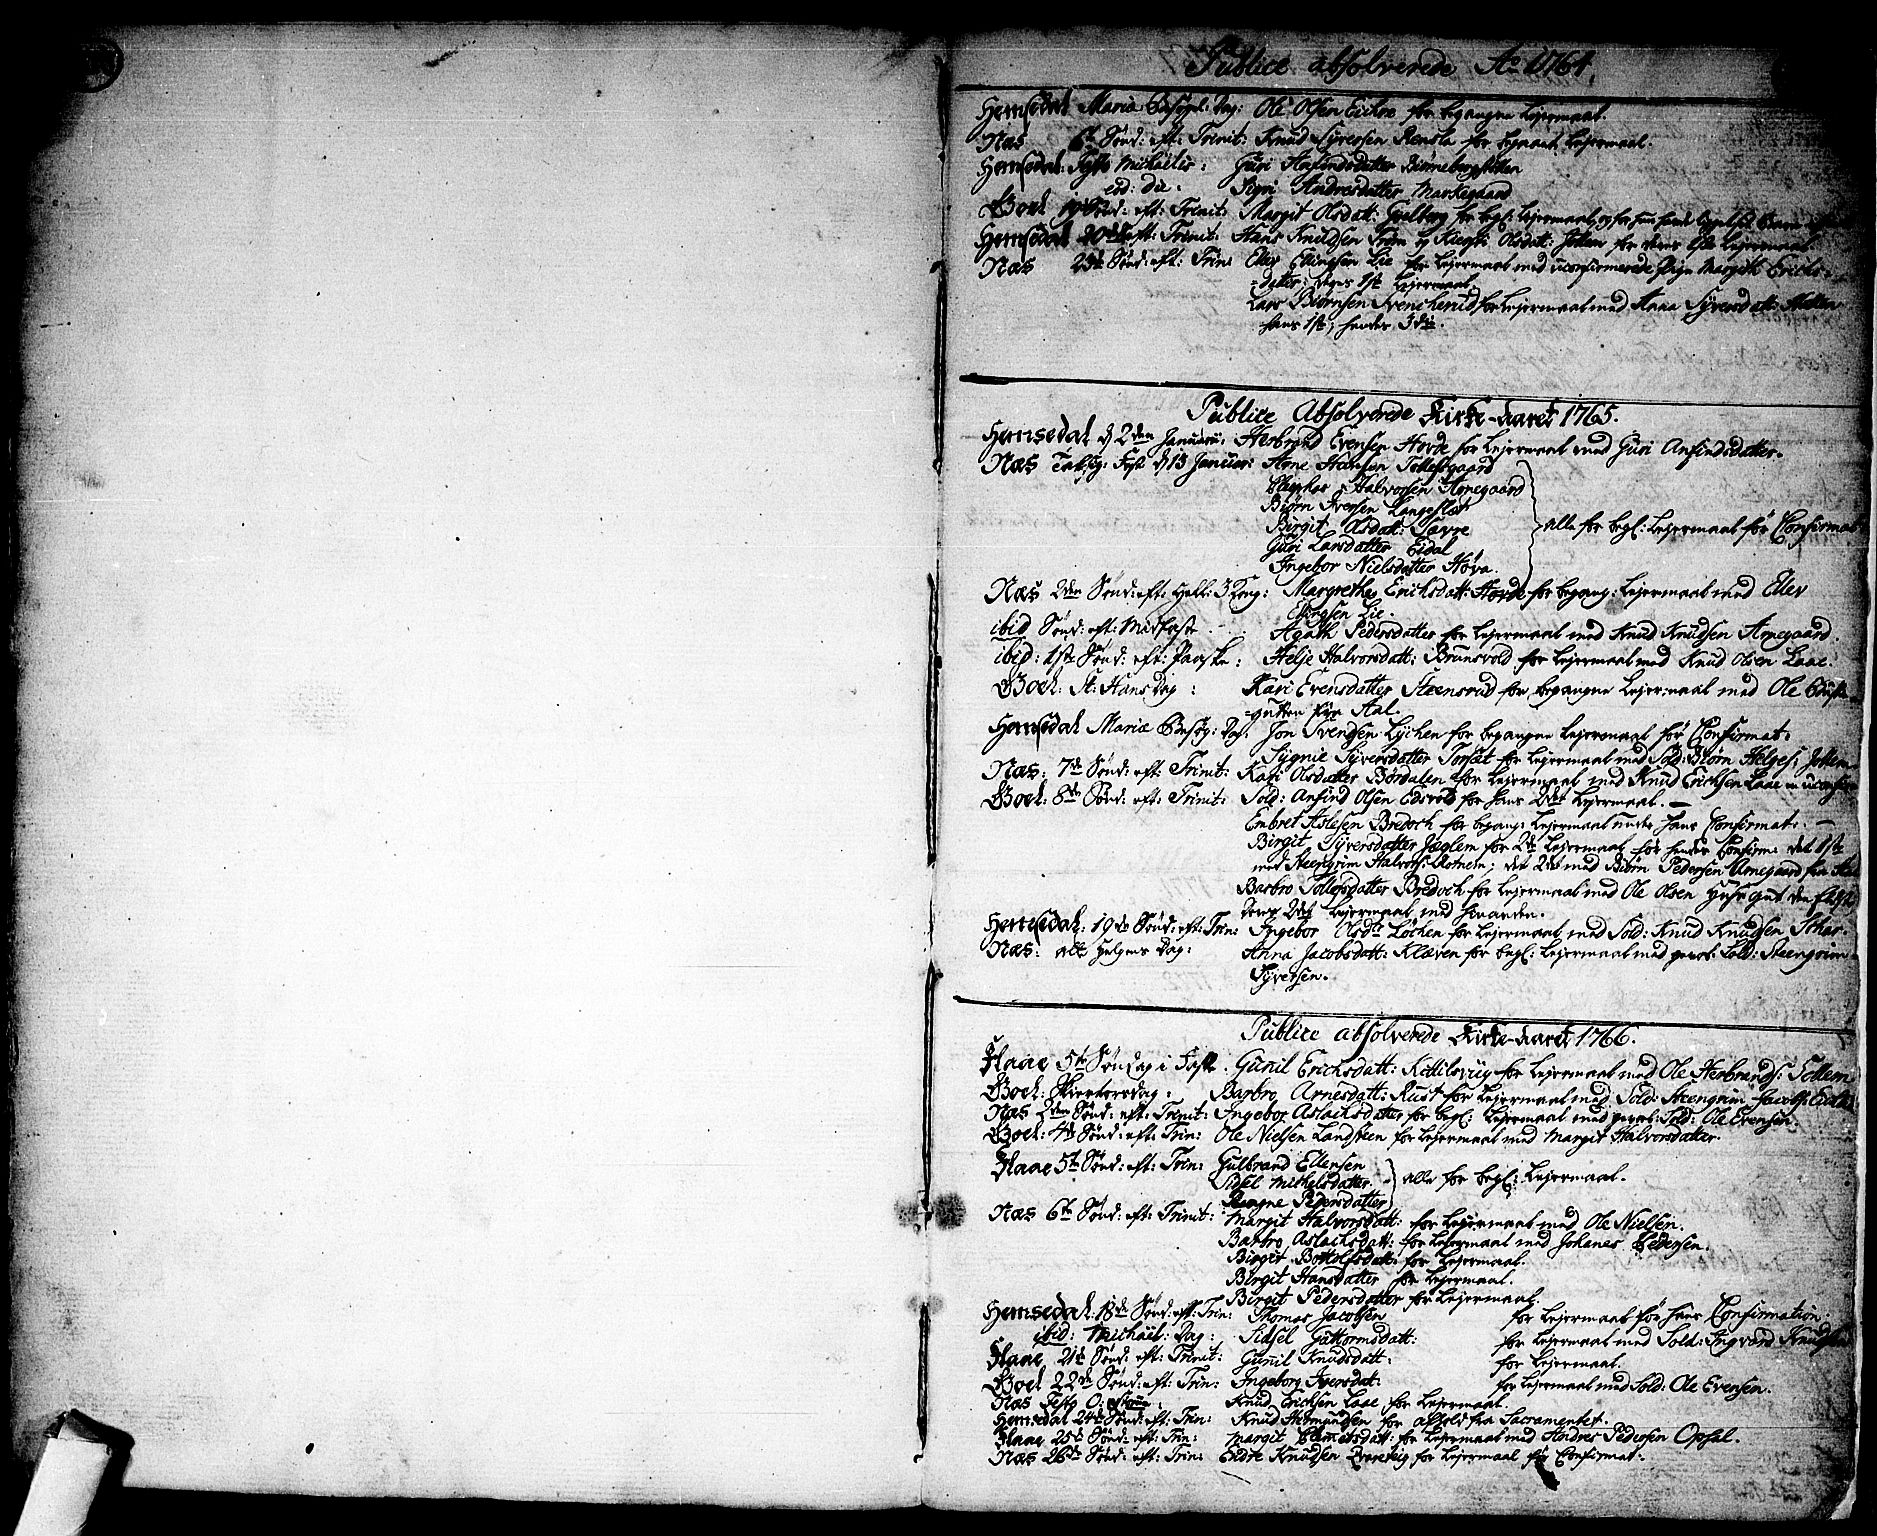 Publice absolverede Ao 1764.
Hemsedal Mariæ Besøgel: Dag: Ole Olsen Eickre for begangne Lejermaal.
Næs 6te Sønd: eft: Trinit: Knud Syversen Rensla for begaaet Lejermaal.
Hemsedal: Festo Michaelis: Guri Anfindsdatter Biørnebergstølen
eod: die. Sigri Andresdatter Markegaard
Goel 19de Sønd: eft: Trinit: Margit Olsdatt: Golberg for begl: Lejermaal, og for
Hemsedal 20de eft: Trinit: Hans Knudsen Trøm og Kiersti Olsdatt: for deres Lejermaal
Næs 23de Sønd: eft: Trin: Elev Ellingsen Lie for Lejermaal med uconfirmerede Pige Margith Erichs-
datter; deres 1ste Lejermaal.
Lars Biørnsen Svencherud for Lejermaal med Anna Syversdatt:
hans 1ste, hendes 3die.
Publice Absolverede Kirke-Aaret 1765.
Hemsedal d 2den Januarii: Herbrand Evensen Hovde for Lejermaal med Guri Anfindsdatter.
Næs Taksig: Fest d 13 Januar: Arne Hansen Tollefsgaard
Halvorsen Arnegaard
Biørn Iversen Langeslet
Birgit Olsdatt: Sævre
Guri Larsdatter Eidal
Ingebor Nielsdatter Hova.
alle for begl: Lejermaal før Confirmat:
Næs 2den Sønd: eft: Hell: 3 Kong: Margrethe Erichsdatt: Hovde for begang: Lejermaal med Elev
Ellingsen Lie.
ibid Sønd: eft: Midfaste Agath Pedersdatter for Lejermaal med Knud Knudsen Arnegaard.
ibid: 1ste Sønd: eft: Paaske: Helje Halvorsdatt: Brunsvold for Lejermaal med Knud Olsen Laae.
Goel: St: Hans Dag: Kari Evensdatter Steensrud for begangne Lejermaal med Ole
gutten fra Aal.
Hemsedal Mariæ Besøg: Dag: Jon Svendsen Lychen for begangne Lejermaal før Confirmat:
Sygnie Syversdatter Torset for Lejermaal med Sold: Biørn Helges:
Næs: 7de Sønd: eft: Trinit: Kari Olsdatter Børdalen for Lejermaal med Knud Erichsen Laae
Goel: 8de Sønd: eft: Trinit: Sold: Anfind Olsen Edsvold for hans 2det Lejermaal.
Embret Aslesen Bredoch for begang: Lejermaal under hans Confirmat:
Birgit Syversdatter Jøglem for 2de Lejermaal før hendes Confirm: det 1ste
med Steengrim Halvors: Rotnem; det 2det med Biørn Pedersen Arnegaard fra
Barbro Tollefsdatter Bredoch for Lejermaal med Ole Olsen
deres 2det Lejermaal med hinanden.
Hemsedal: 19de Sønd: eft: Trin: Ingebor Olsdr Løchen for Lejermaal med Sold: Knud Knudsen
Næs: alle Helgens Dag: Anna Jacobsdatt: Klæven for begl: Lejermaal med gevorb: Sold: Steengrim
Syversen.
Publice absolverede Kirke-Aaret 1766.
Flaae 5te Søndag i Faste. Gunil Erichsdatt: for Lejermaal med Ole Herbrands:
Goel: Skiertorsdag: Barbro Arnesdatt: Rust for Lejermaal med Sold: Steengrim Jacobs:
Næs 2den Sønd: eft: Trinit: Ingebor Aslachsdatter for begl: Lejermaal med gevorb: Sold: Ole Evensen.
Goel: 4de Sønd: eft: Trin: Ole Nielsen Landsteen for Lejermaal med Margit Halvorsdatter
Flaae 5te Sønd: eft: Trin: Gulbrand Ellensen
Sidsel Michelsdatter
Ragne Pedersdatter
alle for begl: Lejermaal.
Næs 6te Sønd: eft: Trinit: Margit Halvorsdatt: for Lejermaal med Ole Nielsen.
Barbro Aslachsdatt: for Lejermaal med Johanes Pedersen.
Birgit Bottolfsdatt: for Lejermaal.
Birgit Hansdatter for Lejermaal.
Birgit Pedersdatter for Lejermaal
Hemsedal: 18de Sønd: eft: Trin: Thomas Jacobsen for Lejermaal før hans Confirmation
ibid: Michael: Dag: Sidsel Guttormsdatt: for Lejermaal med Sold: Ingvard Knudsen
Flaae 21de Sønd: eft: Trinit: Gunil Knudsdatt: for Lejermaal.
Goel 22de Sønd: eft: Trin: Ingeborg Iversdat: for Lejermaal med Sold: Ole Evensen.
Næs Festo O: Knud Erichsen Laae for Lejermaal.
Hemsedal 24de Sønd: eft: Trin: Knud Hermundsen for afhold fra Sacramentet.
Flaae 25de Sønd: eft: Trin: Margit Clemetsdatt: for Lejermaal med Andres Pedersen Opsal.
Næs 26de Sønd: eft: Trin: Endre Knudsen for Lejermaal før Confirmat: